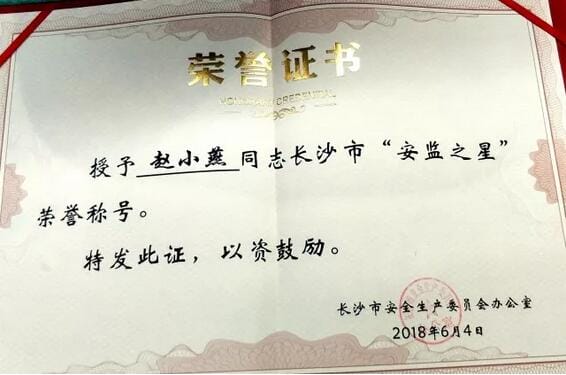 荣誉证书
HONORARY CREDENTIAL
授予 赵小燕 同志长沙市“安监之星”
荣誉称号。
特发此证，以资鼓励。
长沙市安全生产委员会办公室
2018年6月4日